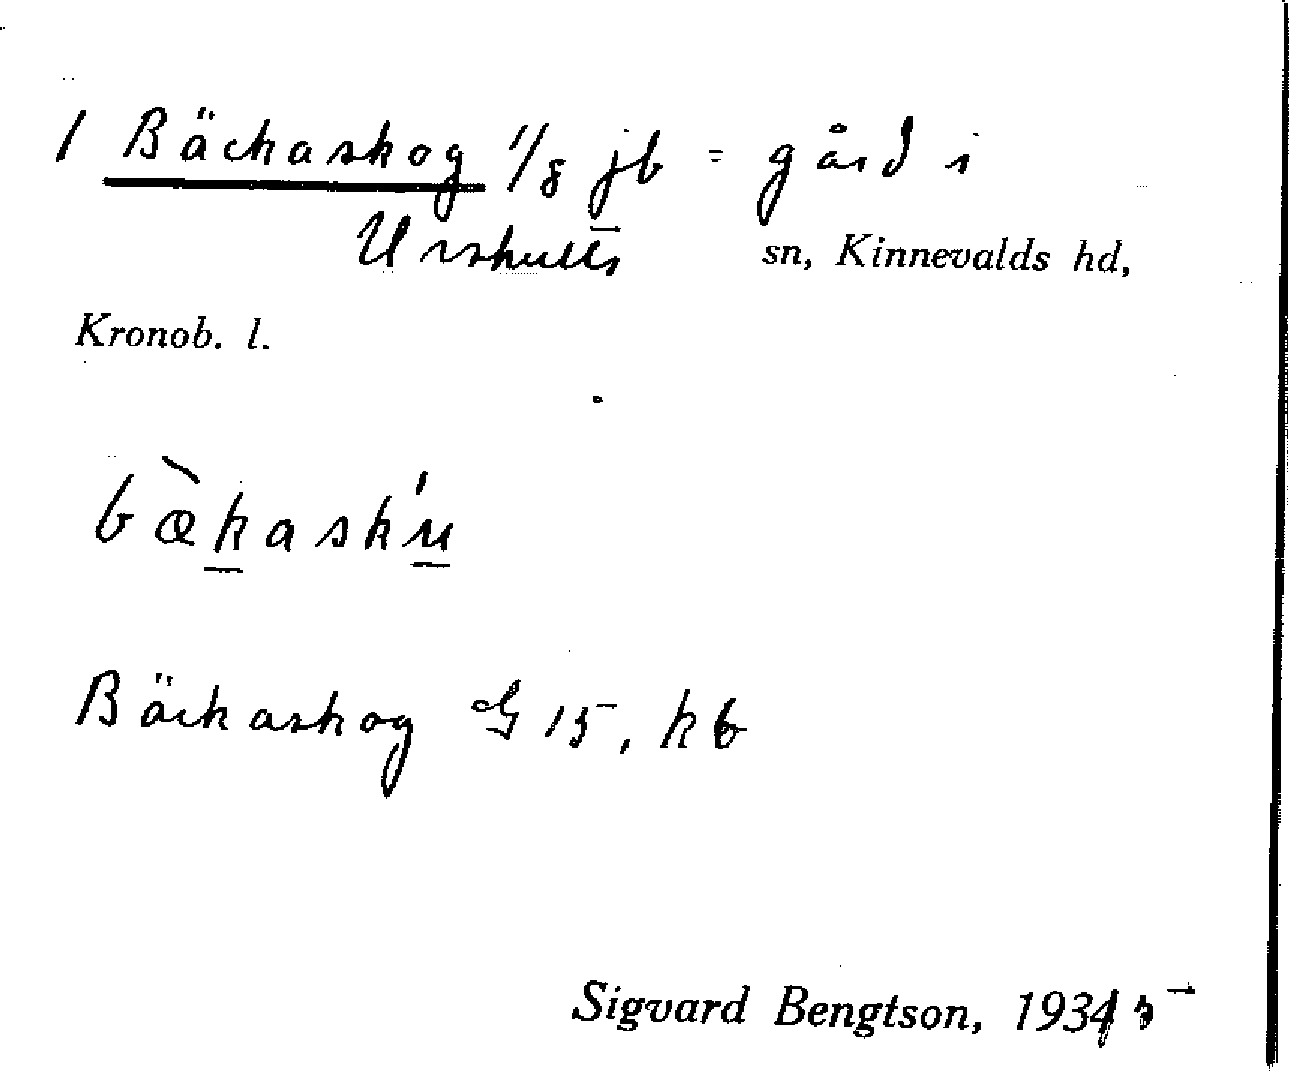 1 Bäckaskog 1/8 jb = gård i
Urshults sn, Kinnevalds hd,
Kronob. l.
bæ̀kaskú
Bäckaskog G 15, kb
Sigvard Bengtson, 1935